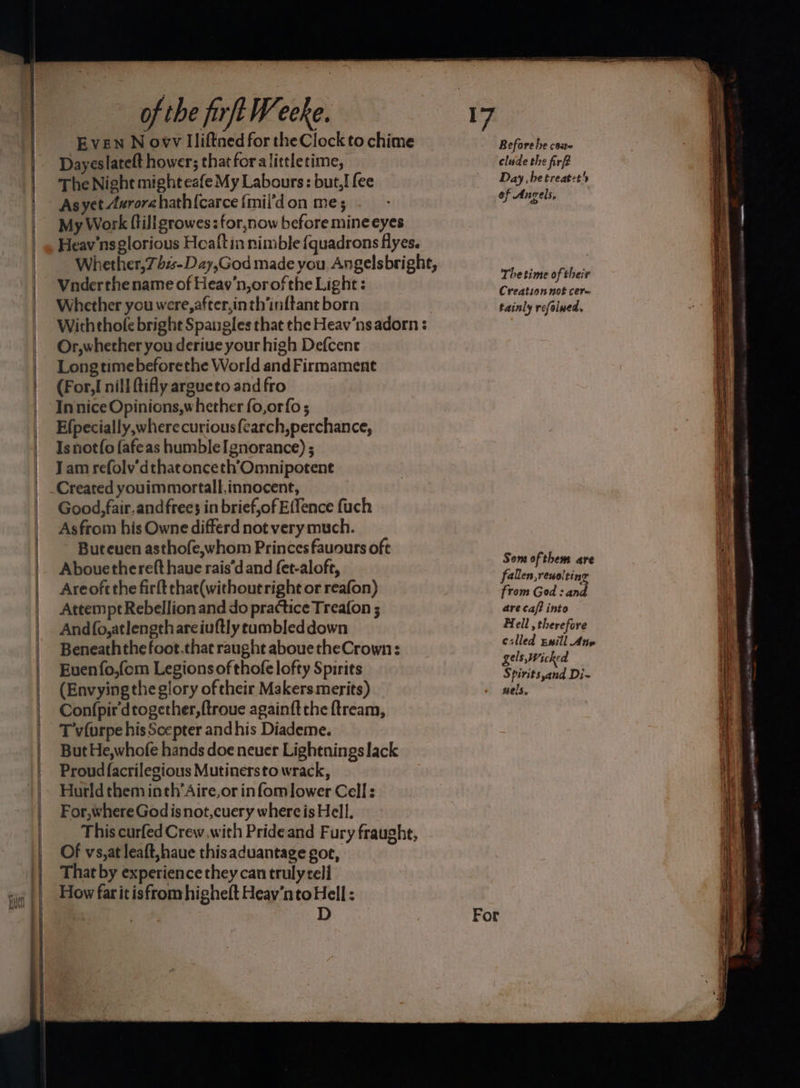 of the firſt Weeke. 17
Even Novv I liſtned for the Clock to chime
Dayes lateſt hower; that for a little time,
The Night might eaſe My Labours: but, I ſee
As yet Aurora hath ſcarce ſmil'd on me;
My Work ſtill growes: for, now before mine eyes
Heav'ns glorious Hoaſt in nimble ſquadrons flyes.
Whether, This-Day, God made you Angels bright,
Vnder the name of Heav'n, or of the Light:
Whether you were, after, in th'inſtant born
With thoſe bright Spangles that the Heav'ns adorn:
Or, whether you deriue your high Deſcent
Long time before the World and Firmament
(For, I nill ſtifly argue to and fro
In nice Opinions, whether ſo, or ſo;
Eſpecially, where curious ſearch, perchance,
Is not ſo ſafe as humble Ignorance);
I am reſolv'd that once th'Omnipotent
Created you immortall, innocent,
Good, fair, and free; in brief, of Eſſence ſuch
As from his Owne differd not very much.
But euen as thoſe, whom Princes fauours oft
Aboue the reſt haue rais'd and ſet-aloft,
Are oft the firſt that (without right or reaſon)
Attempt Rebellion and do practice Treaſon;
And ſo, at length are iuſtly tumbled down
Beneath the foot, that raught aboue the Crown:
Euen ſo, ſom Legions of thoſe lofty Spirits
(Envying the glory of their Makers merits)
Conſpir'd together, ſtroue againſt the ſtream,
T'vſurpe his Scepter and his Diademe.
But He, whoſe hands doe neuer Lightnings lack
Proud ſacrilegious Mutiners to wrack,
Hurld them in th'Aire, or in ſom lower Cell:
For, where God is not, euery where is Hell.
This curſed Crew, with Pride and Fury fraught,
Of vs, at leaſt, haue this aduantage got,
That by experience they can truly tell
How far it is from higheſt Heav'n to Hell:
D For
Before he con-
clude the firſt
Day, he treateth
of Angels.
The time of their
Creation not cer-
tainly reſolued.
Som of them are
fallen, reuolting
from God: and
are caſt into
Hell, therefore
called Euill An-
gels, Wicked
Spirits, and Di-
uels.